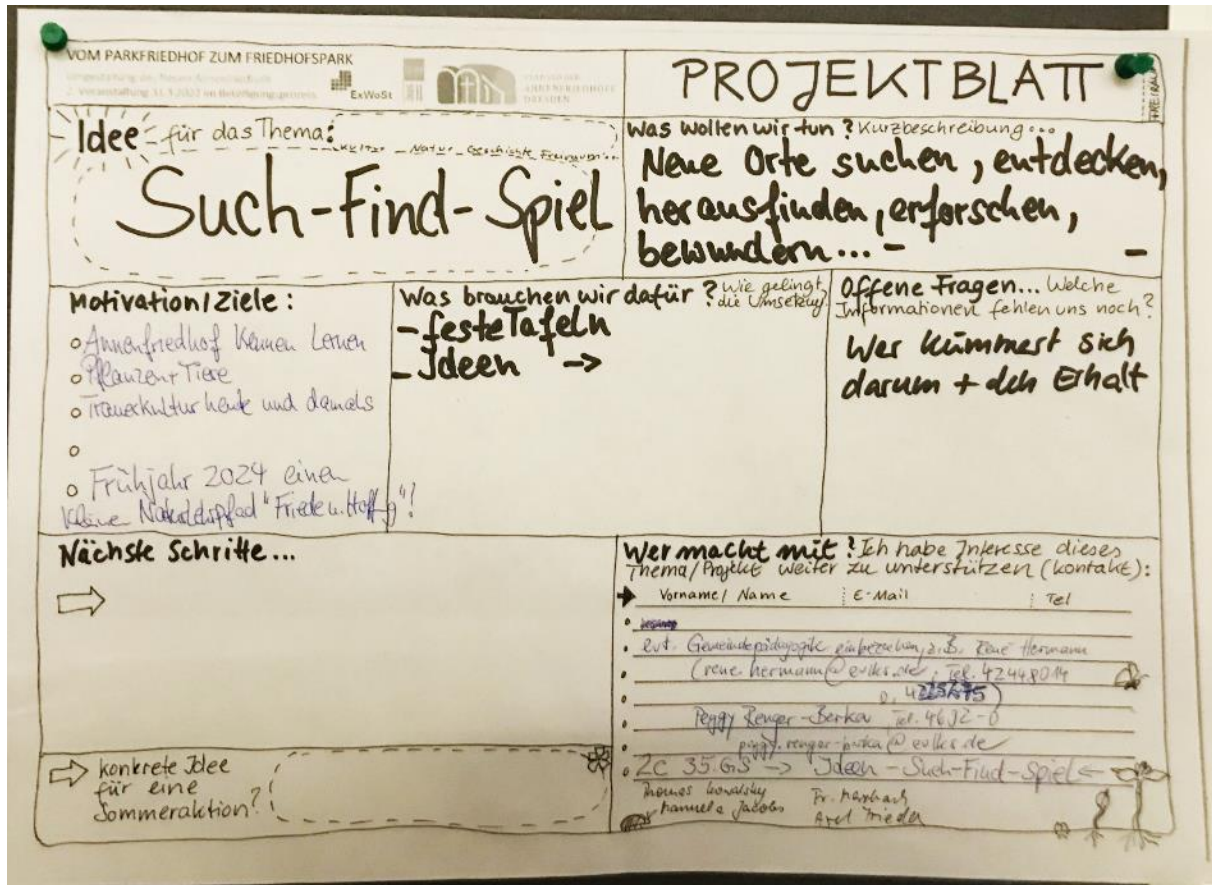 VOM PARKFRIEDHOF ZUM FRIEDHOFSPARK
ExWoSt
PROJEKTBLATT
Idee für das Thema:
Kultur Natur Geschichte Freiraum...
Such-Find-Spiel
Was wollen wir tun? Kurzbeschreibung...
Neue Orte suchen, entdecken,
herausfinden, erforschen,
bewundern... –
–
Motivation/Ziele:
Annenfriedhof Kennen Lernen
Pflanzen + Tiere
Trauerkultur heute und damals
Frühjahr 2024 einen
kleinen Naturlehrpfad "Friede u. Hoffg"!
Was brauchen wir dafür? Wie gelingt
die Umsetzung
- feste Tafeln
- Ideen ->
Offene Fragen... Welche
Informationen fehlen uns noch?
Wer kümmert sich
darum + den Erhalt
Nächste Schritte...
konkrete Idee
für eine
Sommeraktion?
Wer macht mit? Ich habe Interesse dieses
Thema/Projekt weiter zu unterstützen (Kontakt):
Vorname/Name E-Mail Tel
evt. Gemeindepädagogik einbeziehen, z.B. René Hermann
(rene.hermann@evlks.de, Tel. 42448014
Peggy Renger-Berka Tel. 4692-0
2c 35.GS -> Ideen - Such-Find-Spiel <-
Thomas Kowalsky
Manuela Jacobs
Axel